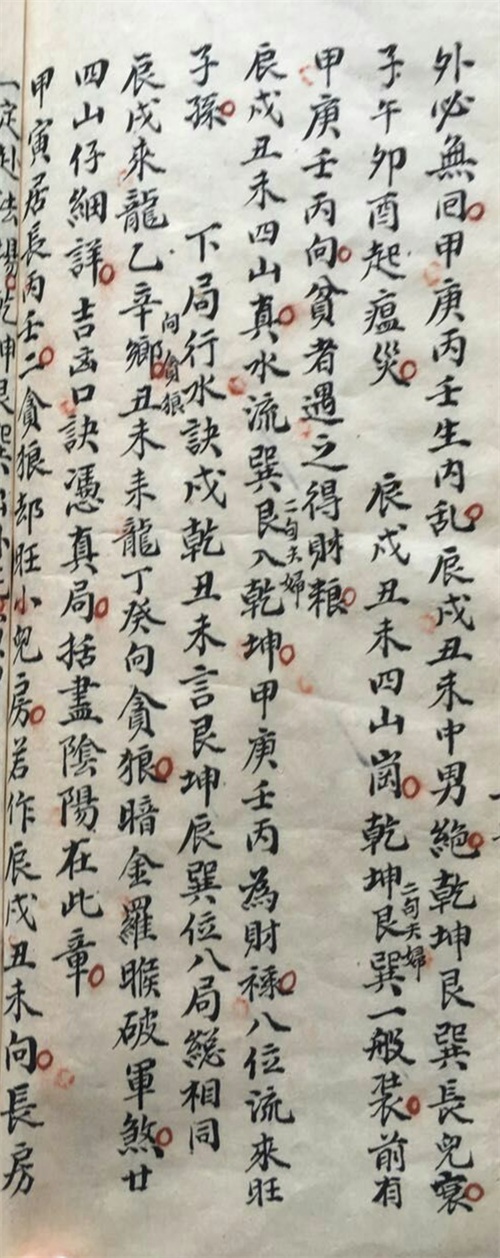 外必無回甲庚丙壬生内乱辰戍丑未中男絶乾坤艮巽長兒衰
子午卯酉起瘟災　辰戍丑未四山崗乾坤艮巽一般装前有
二句夫婦
甲庚壬丙向貧者遇之得財粮
辰戍丑未四山真水流巽艮入乾坤甲庚壬丙為財祿八位流來旺
二句夫婦
子孫　下局行水訣戍乾丑未言艮坤辰巽位八局総相同
辰戍來龍乙辛鄉丑未来龍丁癸向貪狼暗金羅睺破軍煞廿
向貪狼
四山仔細詳吉凶口訣憑真局括盡陰陽在此章
甲寅居長丙壬二貪狼却旺小兒房若作辰戍丑未向長房